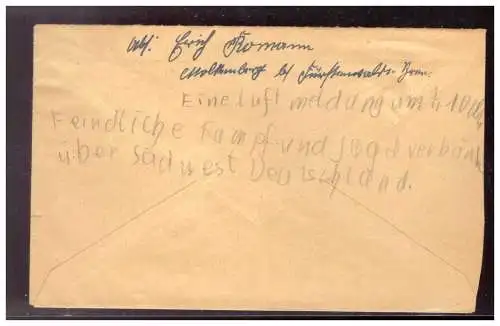 Abs: Erich Romann
b/ Fürstenwalde-Spree.
Eine Luft meldung um ¼ 10 Uhr
Feindliche Kampf und Jagd verbän
über Südwest Deutschland.